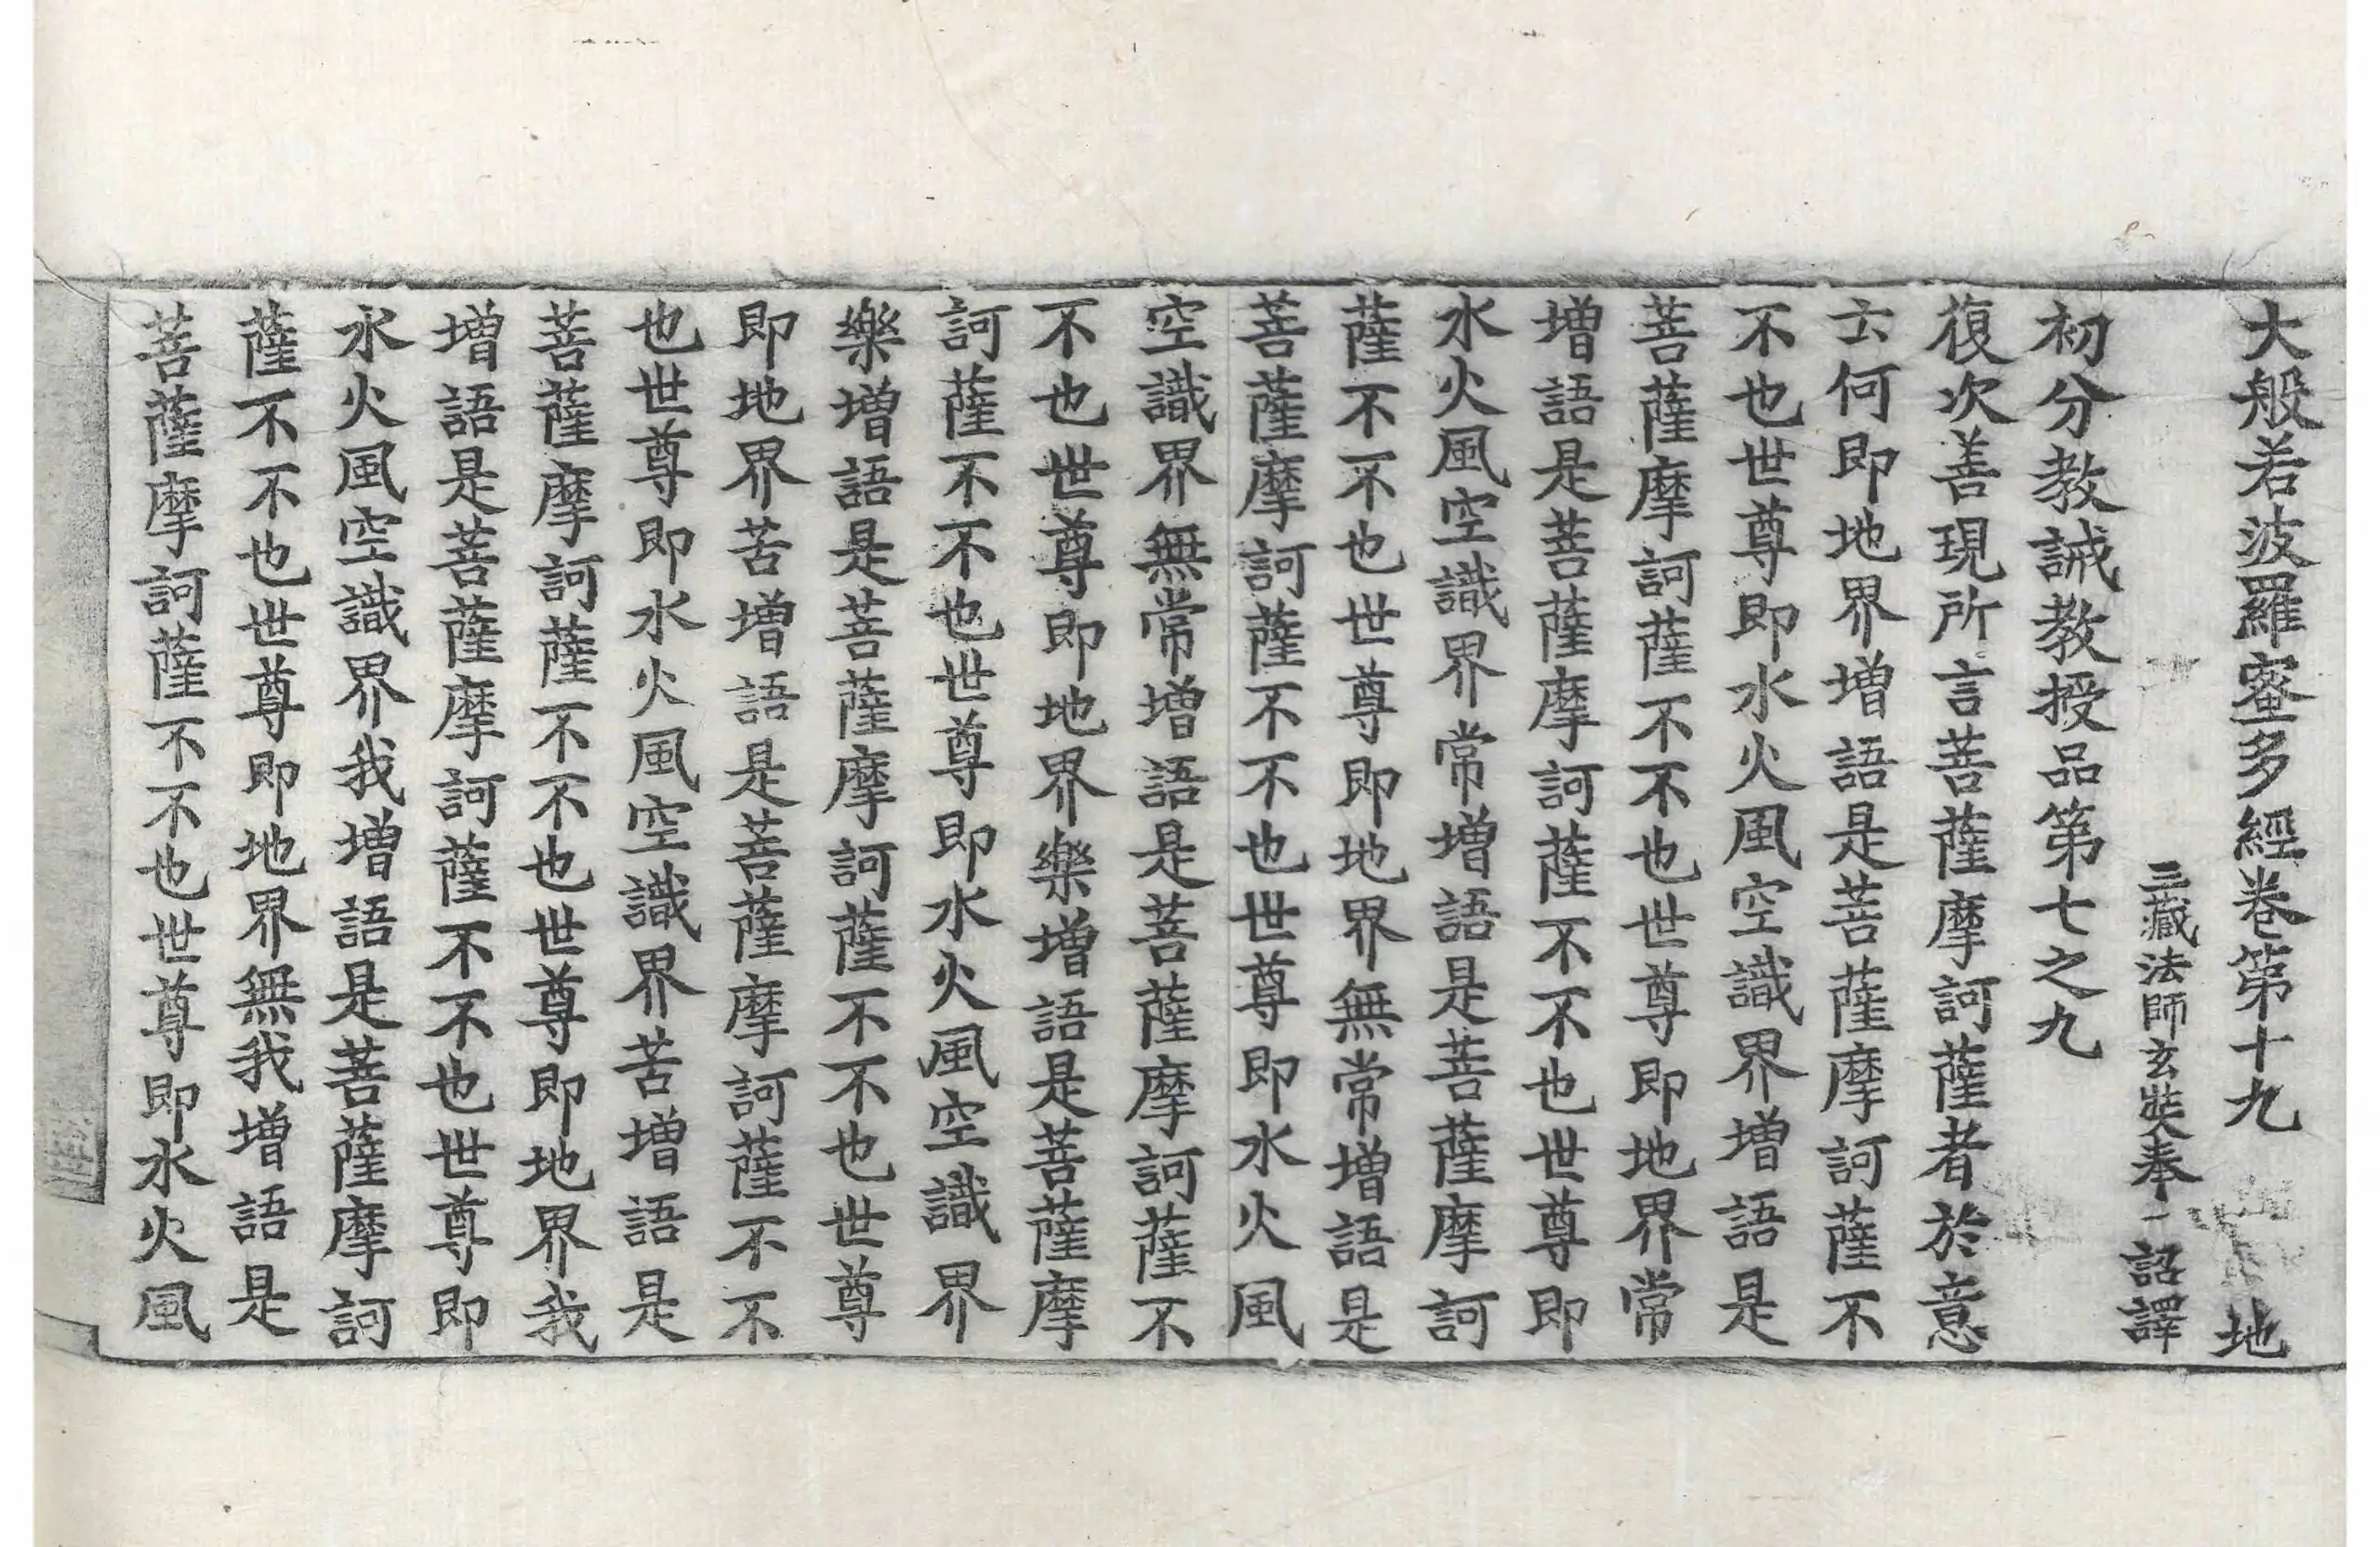 大般若波羅蜜多經卷第十九 地
三藏法師玄奘奉 詔譯
初分教誡教授品第七之九
復次善現所言菩薩摩訶薩者於意
云何即地界增語是菩薩摩訶薩不
不也世尊即水火風空識界增語是
菩薩摩訶薩不不也世尊即地界常
增語是菩薩摩訶薩不不也世尊即
水火風空識界常增語是菩薩摩訶
薩不不也世尊即地界無常增語是
菩薩摩訶薩不不也世尊即水火風
空識界無常增語是菩薩摩訶薩不
不也世尊即地界樂增語是菩薩摩
訶薩不不也世尊即水火風空識界
樂增語是菩薩摩訶薩不不也世尊
即地界苦增語是菩薩摩訶薩不不
也世尊即水火風空識界苦增語是
菩薩摩訶薩不不也世尊即地界我
增語是菩薩摩訶薩不不也世尊即
水火風空識界我增語是菩薩摩訶
薩不不也世尊即地界無我增語是
菩薩摩訶薩不不也世尊即水火風